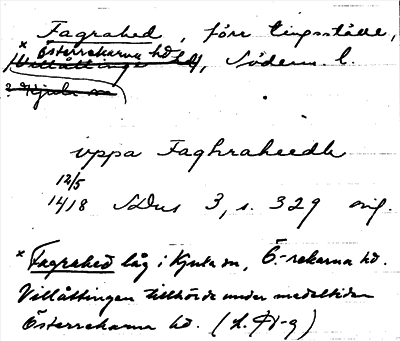 Fagrahed, förr tingsställe,
* Österrekarna hd
Villåttinge hd, Söderm. l.
? Kjula sn
uppa Faghraheedh
12/5
1418 SDns 3, s. 329 orig.
* Fagrahed låg i Kjula sn, Ö.-rekarna hd.
Villåttingen tillhörde under medeltiden
Österrekarna hd. (